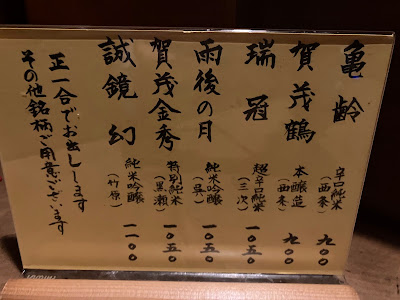 亀齢 辛口純米(西条) 九〇〇
賀茂鶴 本醸造(西条) 九〇〇
瑞冠 超辛口純米(三次) 一〇五〇
雨後の月 純米吟醸(呉) 一〇五〇
賀茂金秀 特別純米(黒瀬) 一〇五〇
誠鏡 幻 純米吟醸(竹原) 一一〇〇
正一合でお出しします
その他銘柄ご用意ございます